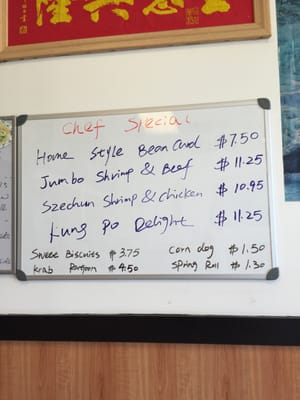 Chef Special
Home Style Bean Curd $7.50
Jumbo Shrimp & Beef $11.25
Szechun Shrimp & Chicken $10.95
Kung Po Delight $11.25
Sweet Biscuits $3.75 corn dog $1.50
Krab Rangoon $4.50 Spring Roll $1.30